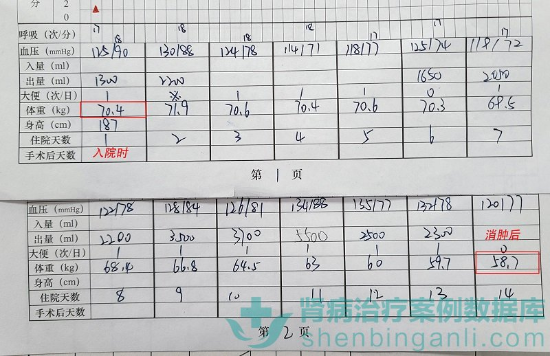 2
0
呼吸（次/分） 17 18 18 18 17 17
血压（mmHg） 125/90 130/88 124/78 114/71 118/77 125/74 118/72
入量（ml）
出量（ml） 1300 2200 1650 2050
大便（次/日） 1 1 1 1 0 1
体重（kg） 70.4 71.9 70.6 70.4 70.6 70.3 68.5
身高（cm） 187
住院天数 1 2 3 4 5 6 7
手术后天数 入院时
第 1 页
血压（mmHg） 122/78 128/84 126/81 134/88 135/77 132/78 120/77
入量（ml）
出量（ml） 2200 3500 3700 5500 2500 2300 消肿后
大便（次/日） 1 1 1 1 1 1 0
体重（kg） 68.4 66.8 64.5 63 60 59.7 58.7
身高（cm）
住院天数 8 9 10 11 12 13 14
手术后天数
第 2 页
肾病治疗案例数据库
shenbinganli.com